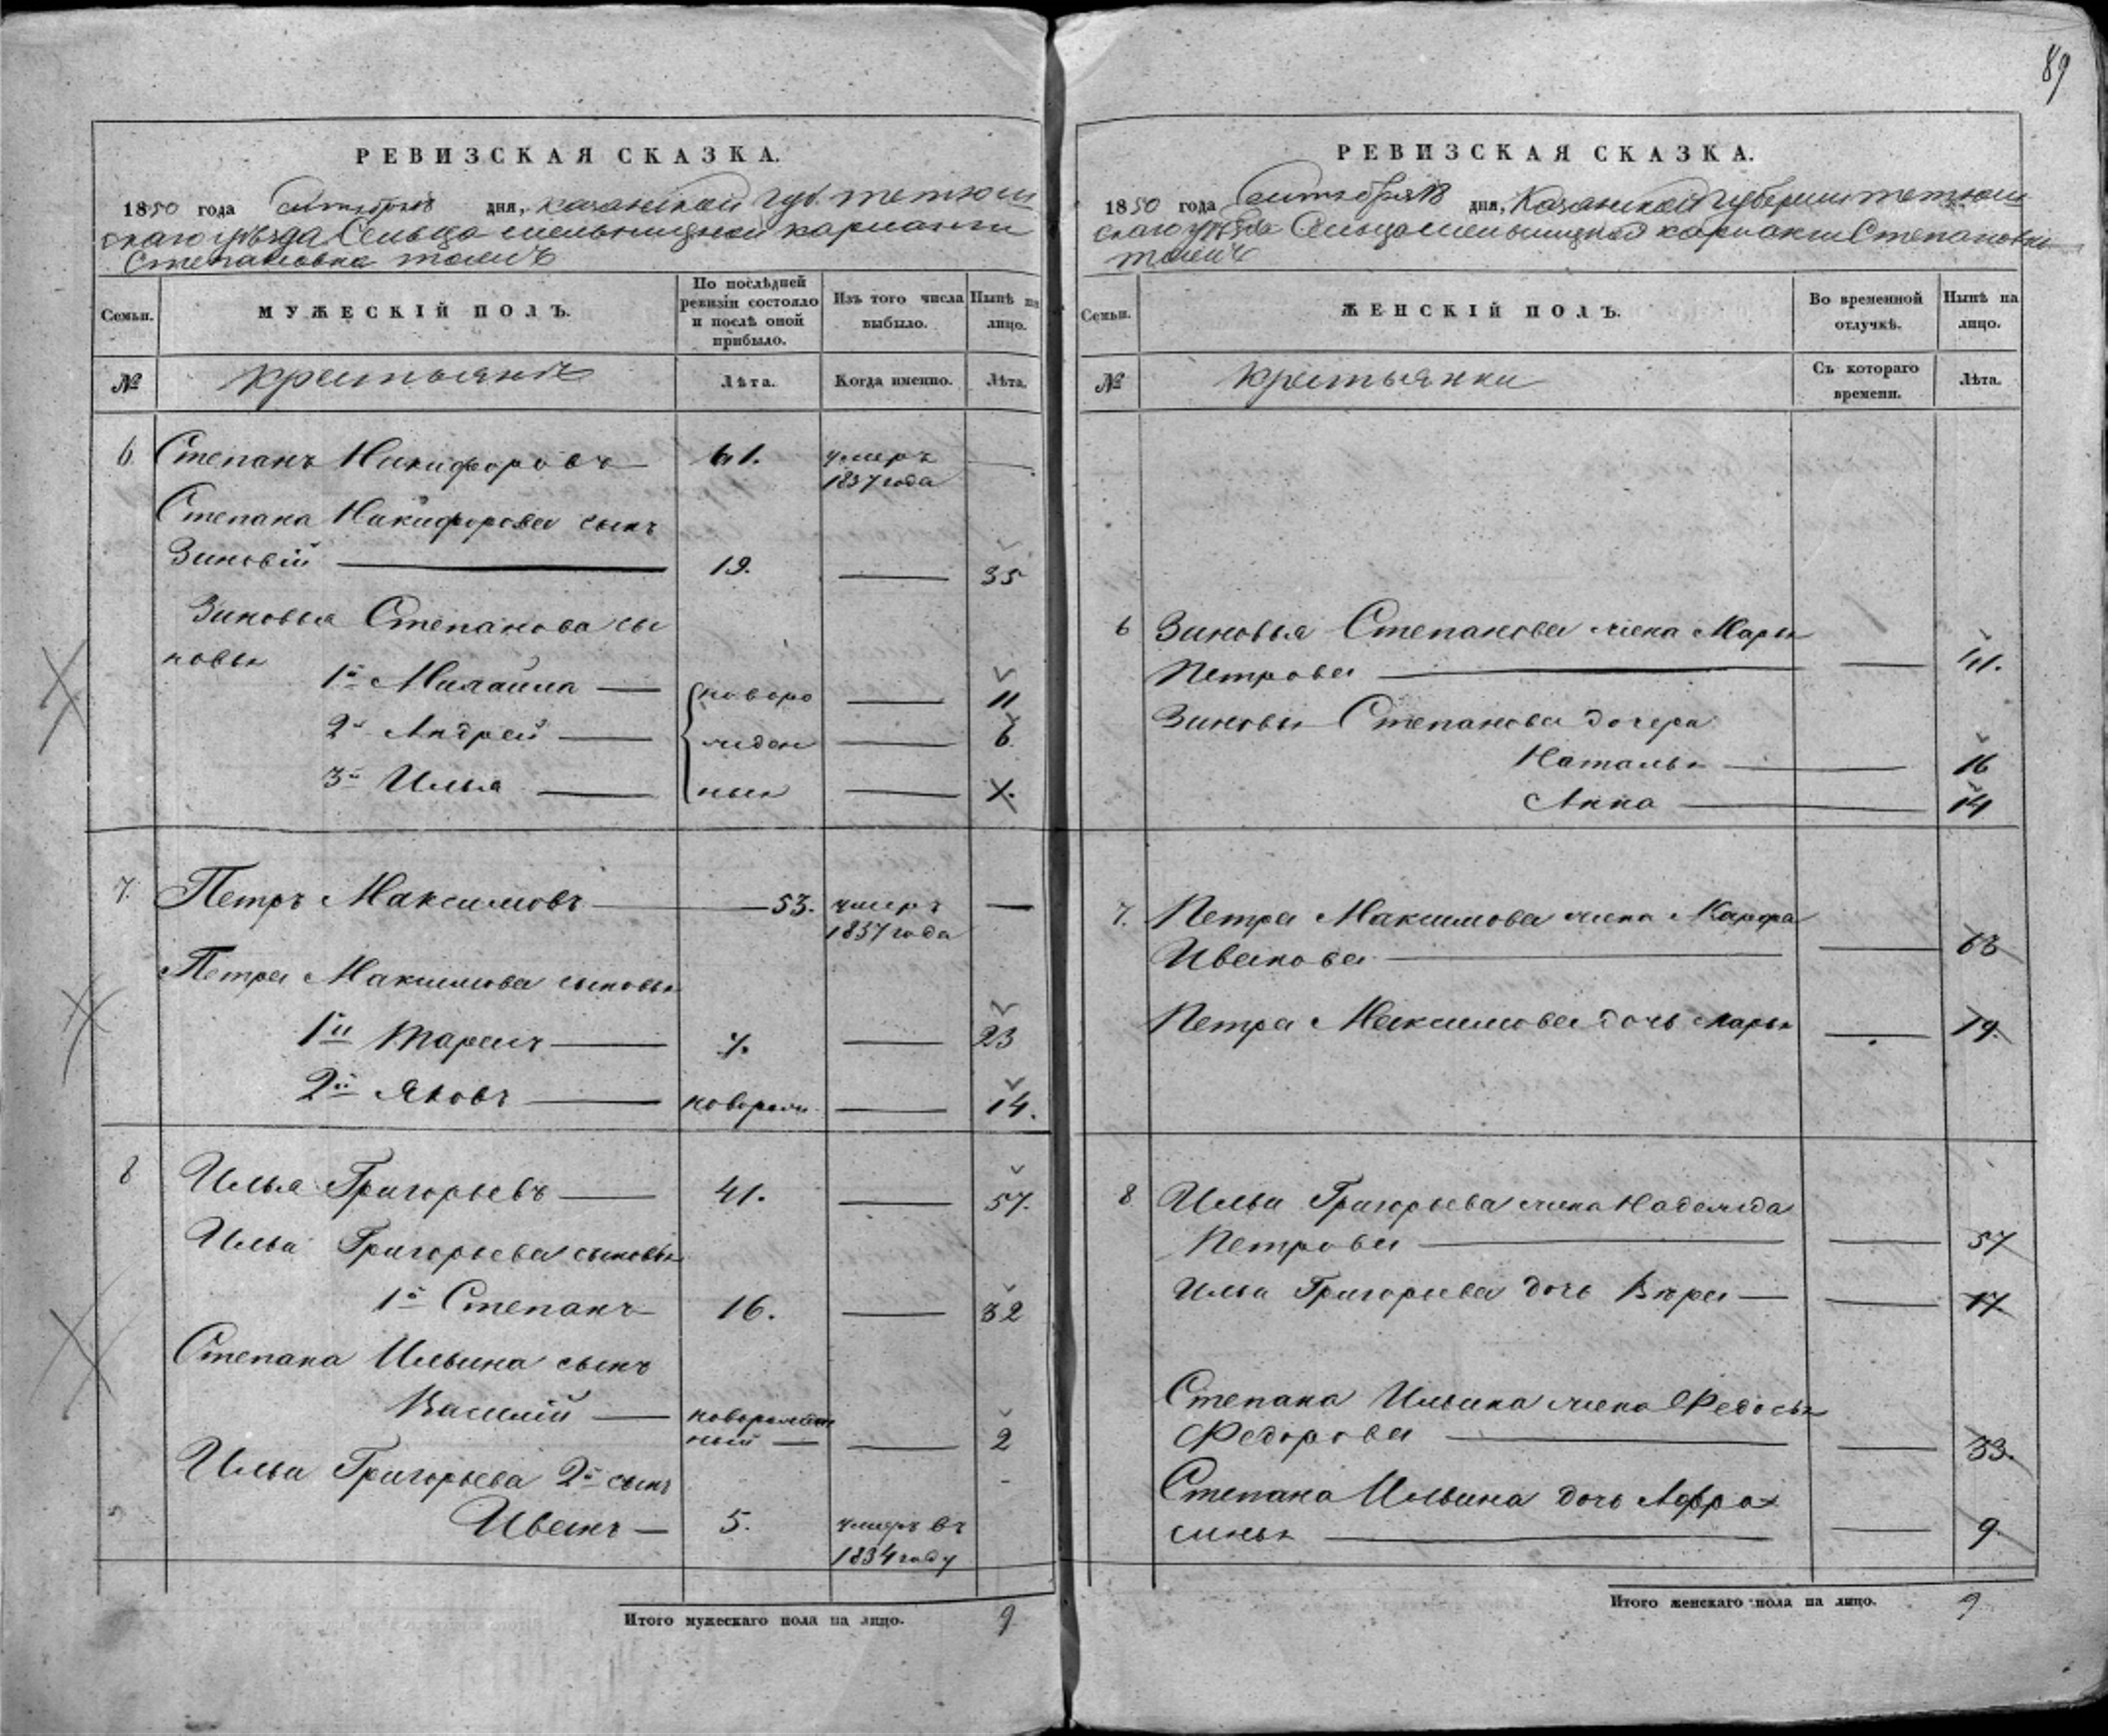 89
РЕВИЗСКАЯ СКАЗКА.
1850 года октября 8 дня, Казанской губ. тетюш
скаго уѣзда Сельцо мельницкой кармалки
Степановка тожъ
Семьи.
МУЖЕСКІЙ ПОЛЪ.
По послѣдней ревизіи состояло и послѣ оной прибыло.
Изъ того числа выбыло.
Нынѣ на лицо.
№
крестьянъ
Лѣта.
Когда именно.
Лѣта.
6. Степанъ Никифоровъ 61. умеръ
1837 года
Степана Никифорова сынъ
Зиновій 19. 35
Зиновья Степанова сы
новья
1й Михайла новоро 11
2й Андрей жден 6.
3й Илья ныя
7. Петръ Максимовъ 53. умеръ
1837 года
Петра Максимова сыновья
1й Тарасъ 7. 23
2й Яковъ наворож 14.
8 Илья Григорьевъ 41. 57.
Ильи Григорьева сыновья
1й Степанъ 16. 32
Степана Ильина сынъ
Василій новорожден
ный 2
Ильи Григорьева 2й сынъ
Иванъ 5. умеръ въ
1834 году
Итого мужескаго пола на лицо. 9
РЕВИЗСКАЯ СКАЗКА.
1850 года октября 8 дня, Казанской Губерніи тетюш
скаго уѣзда Сельцо мельницкой кармалки Степановка
тожъ
Семьи.
ЖЕНСКІЙ ПОЛЪ.
Во временной отлучкѣ.
Нынѣ на лицо.
№
Крестьянки
Съ котораго времени.
Лѣта.
6 Зиновья Степанова жена Марья
Петрова 41.
Зиновья Степанова дочери
Наталья 16
Анна 14
7. Петра Максимова жена Марфа
Иванова 68
Петра Максимова дочь Марья 19.
8 Ильи Григорьева жена Надежда
Петрова 57
Ильи Григорьева дочь Вѣра 17
Степана Ильина жена Федосья
Федорова 33.
Степана Ильина дочь Афро
синья 9
Итого женскаго пола на лицо. 9